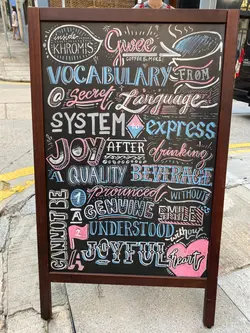 inside KHROMIS
Gwee
COFFEE & MORE
VOCABULARY FROM
@ Secret Language
SYSTEM express
JOY AFTER drinking
A QUALITY BEVERAGE
CANNOT BE
1 pronounced WITHOUT
A GENUINE SMILE
2 UNDERSTOOD without
A JOYFUL Heart